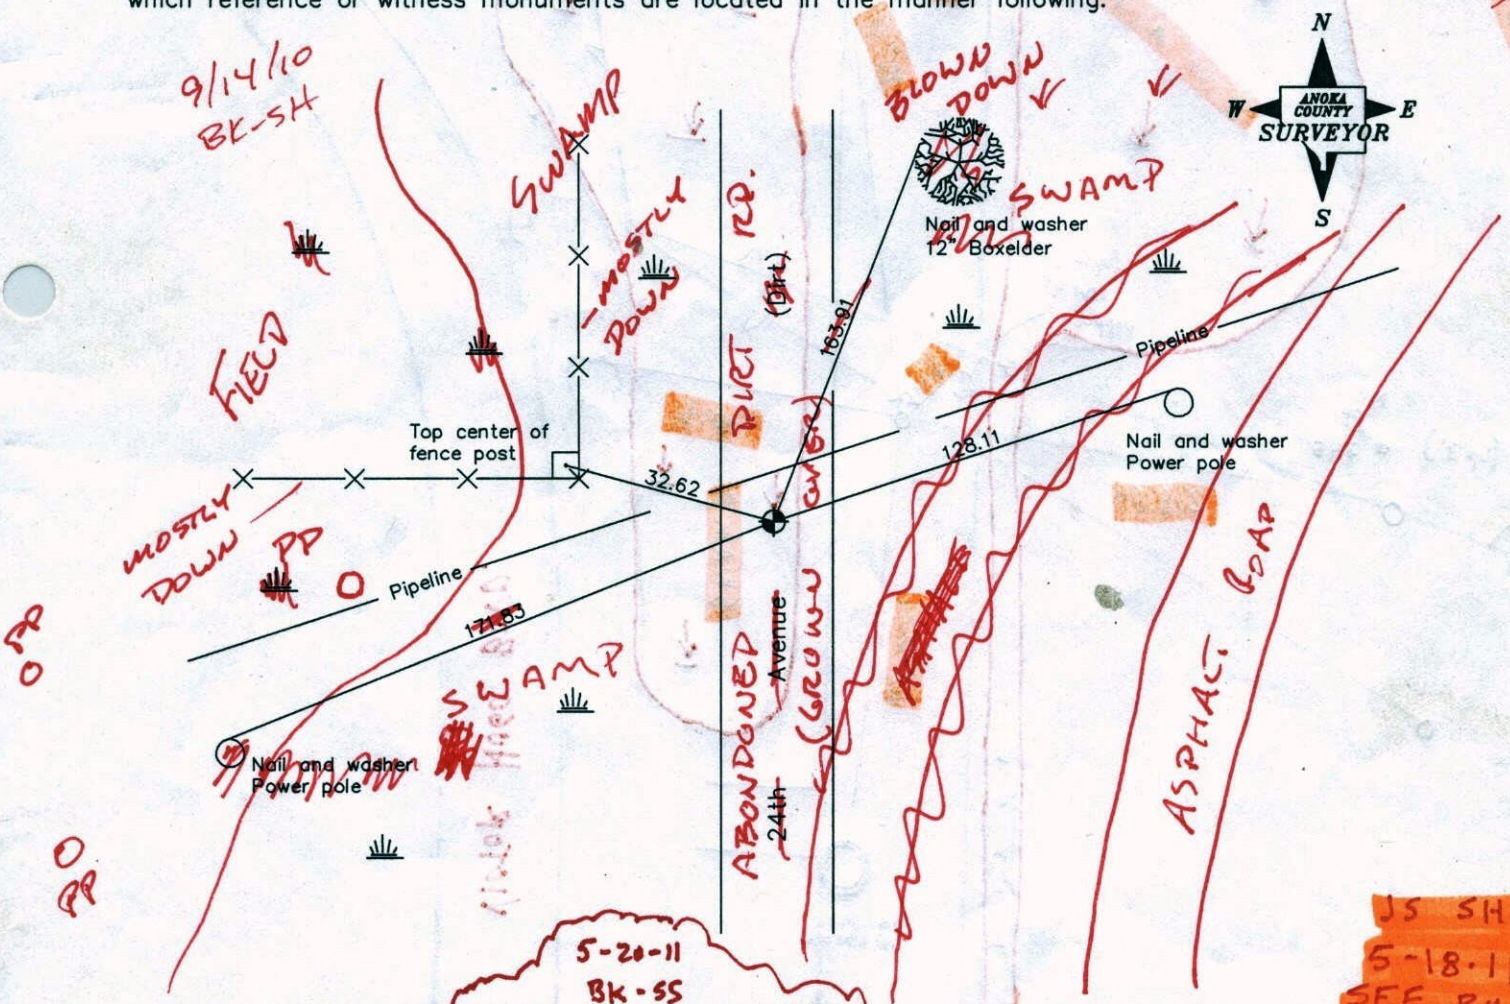 which reference or witness monuments are located in the manner following:
9/14/10
BK-SH
SWAMP
BLOWN
DOWN
N
W
ANOKA
COUNTY
SURVEYOR
E
S
SWAMP
Nail and washer
12" Boxelder
MOSTLY
DOWN
DIRT RD.
(Dirt)
163.91
FIELD
Pipeline
Top center of
fence post
128.11
Nail and washer
Power pole
32.62
MOSTLY
DOWN
PP
Pipeline
171.83
PP
SWAMP
ABONDONED
24th Avenue
(GROWN OVER)
ASPHALT ROAD
Nail and washer
Power pole
PP
5-20-11
BK-SS
JS SH
5-18-1
SEE